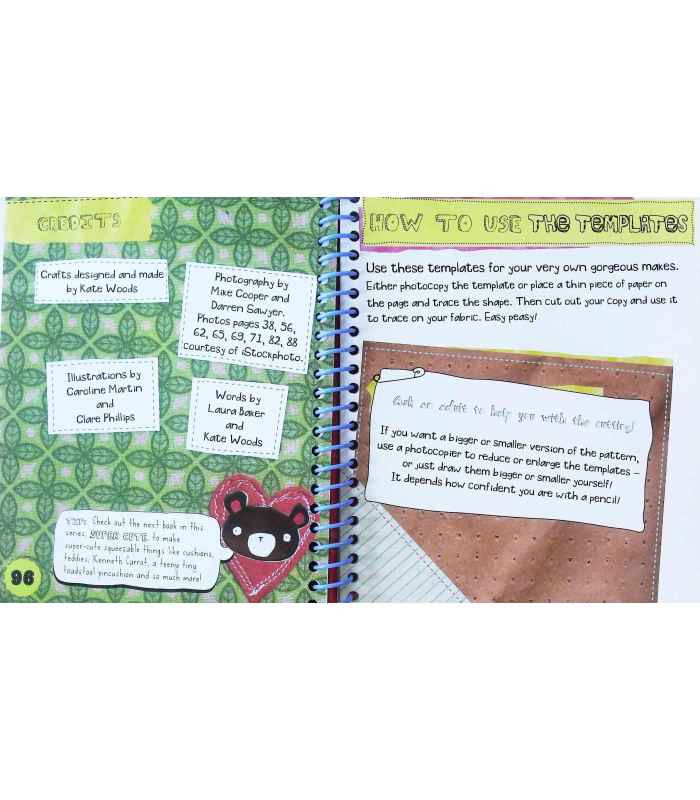 CREDITS
Crafts designed and made
by Kate Woods
Photography by
Mike Cooper and
Darren Sawyer.
Photos pages 38, 56,
62, 65, 69, 71, 82, 88
courtesy of iStockphoto.
Illustrations by
Caroline Martin
and
Clare Phillips
Words by
Laura Baker
and
Kate Woods
TIP: Check out the next book in this
series, SUPER CUTE, to make
super-cute squeezable things like cushions,
teddies, Kenneth Carrot, a teeny tiny
toadstool pincushion and so much more!
96
HOW TO USE THE TEMPLATES
Use these templates for your very own gorgeous makes.
Either photocopy the template or place a thin piece of paper on
the page and trace the shape. Then cut out your copy and use it
to trace on your fabric. Easy peasy!
Ask an adult to help you with the cutting!
If you want a bigger or smaller version of the pattern,
use a photocopier to reduce or enlarge the templates –
or just draw them bigger or smaller yourself!
It depends how confident you are with a pencil!